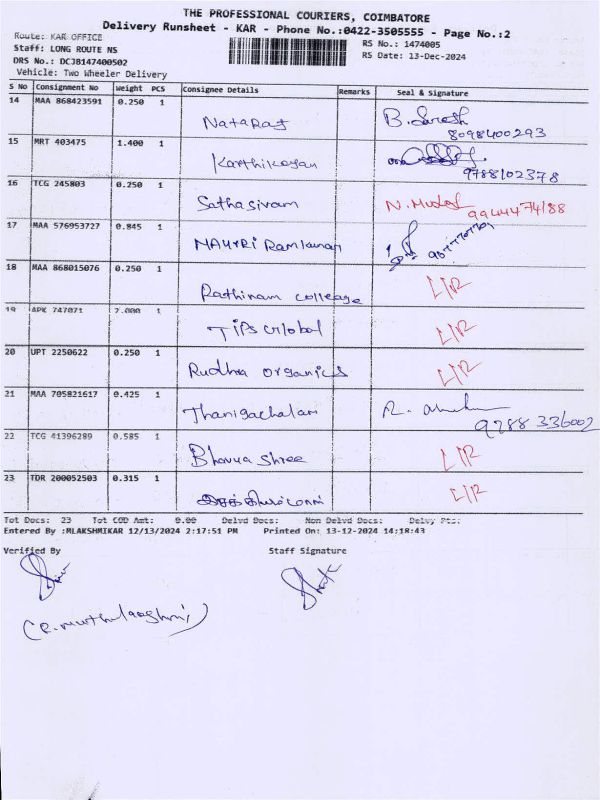 THE PROFESSIONAL COURIERS, COIMBATORE
Delivery Runsheet - KAR - Phone No.:0422-3505555 - Page No.:2
Route: KAR OFFICE
RS No.: 1474005
Staff: LONG ROUTE NS
RS Date: 13-Dec-2024
DRS No.: DCJB147400502
Vehicle: Two Wheeler Delivery
S No Consignment No Weight PCS Consignee Details Remarks Seal & Signature
14 MAA 868423591 0.250 1 Nataraj B. Suresh
8098400293
15 MRT 403475 1.400 1 Karthikeyan
9788102378
16 TCG 245803 0.250 1 Sathasivam
9944474188
17 MAA 576953727 0.845 1 MAYURI Ramkumar
18 MAA 868015076 0.250 1 Rathinam colleage L/R
19 APK 747071 2.000 1 TIPS Global L/R
20 UPT 2250622 0.250 1 Rudhra organics L/R
21 MAA 705821617 0.425 1 Thanigachalam R.
9788 336002
22 TCG 41396289 0.585 1 Bhavya Shree L/R
23 TDR 200052503 0.315 1 L/R
Tot Docs: 23 Tot COD Amt: 0.00 Delvd Docs: Non Delvd Docs: Delvy Pts:
Entered By :MLAKSHMIKAR 12/13/2024 2:17:51 PM Printed On: 13-12-2024 14:18:43
Verified By Staff Signature